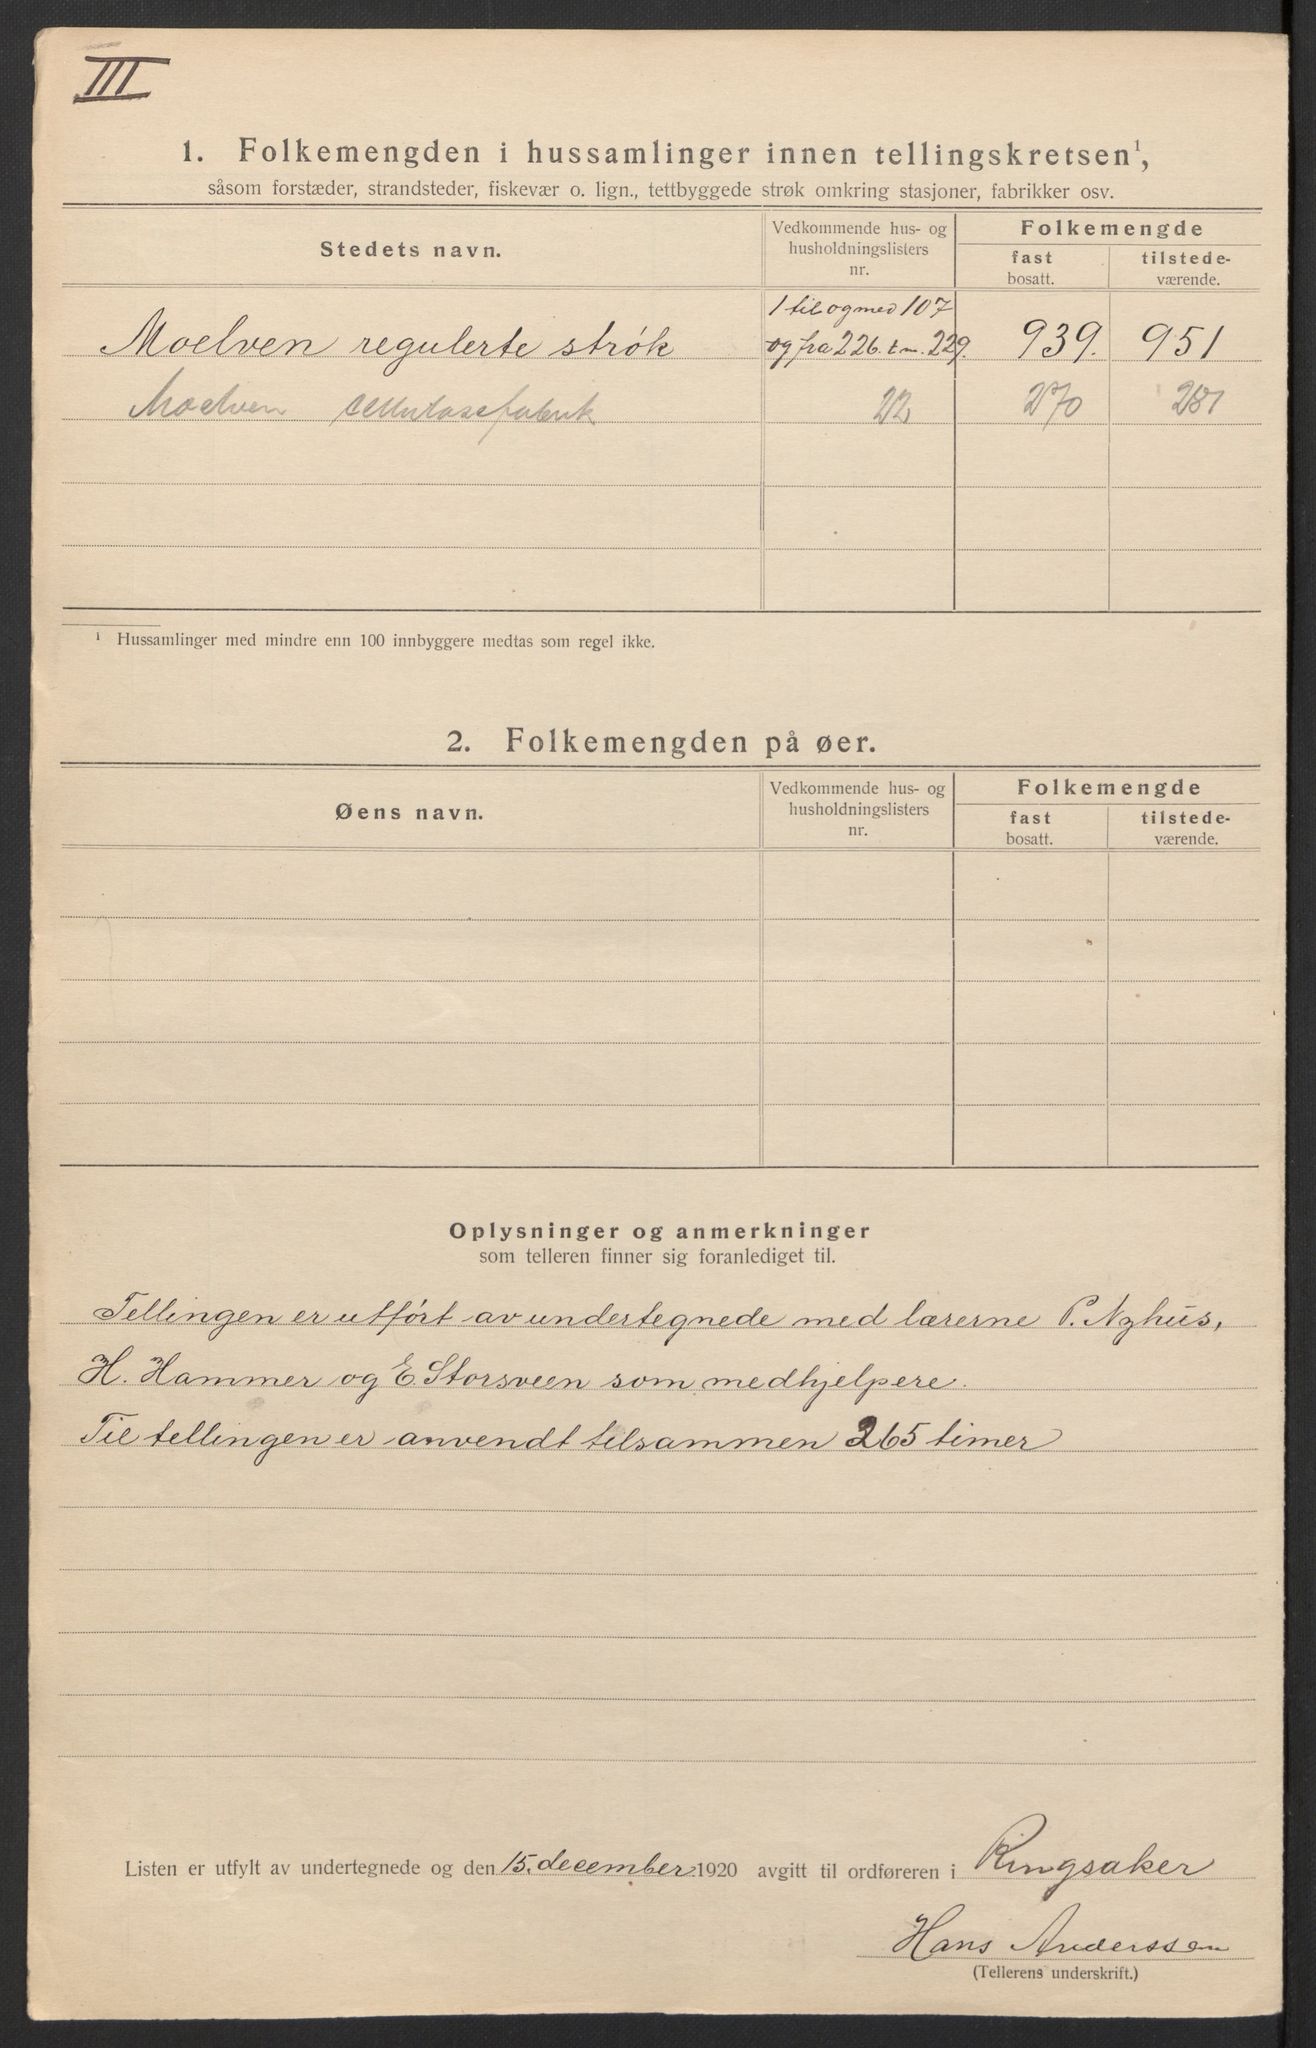 III
1. Folkemengden i hussamlinger innen tellingskretsen¹,
såsom forstæder, strandsteder, fiskevær o. lign., tettbyggede strøk omkring stasjoner, fabrikker osv.
Stedets navn.
Vedkommende hus- og
husholdningslisters
nr.
Folkemengde
fast
bosatt.
tilstede-
værende.
1 til og med 107
Moelven regulerte strøk og fra 226. t.m. 229. 939. 951
Moelven cellulosefabrik 22 270 281
¹ Hussamlinger med mindre enn 100 innbyggere medtas som regel ikke.
2. Folkemengden på øer.
Øens navn.
Vedkommende hus- og
husholdningslisters
nr.
Folkemengde
fast
bosatt.
tilstede-
værende.
Oplysninger og anmerkninger
som telleren finner sig foranlediget til.
Tellingen er utført av undertegnede med lærerne P. Nyhus,
H. Hammer og E. Storsveen som medhjelpere.
Til tellingen er anvendt tilsammen 265 timer
Listen er utfylt av undertegnede og den 15. december 1920 avgitt til ordføreren i Ringsaker
Hans Anderssen
(Tellerens underskrift.)